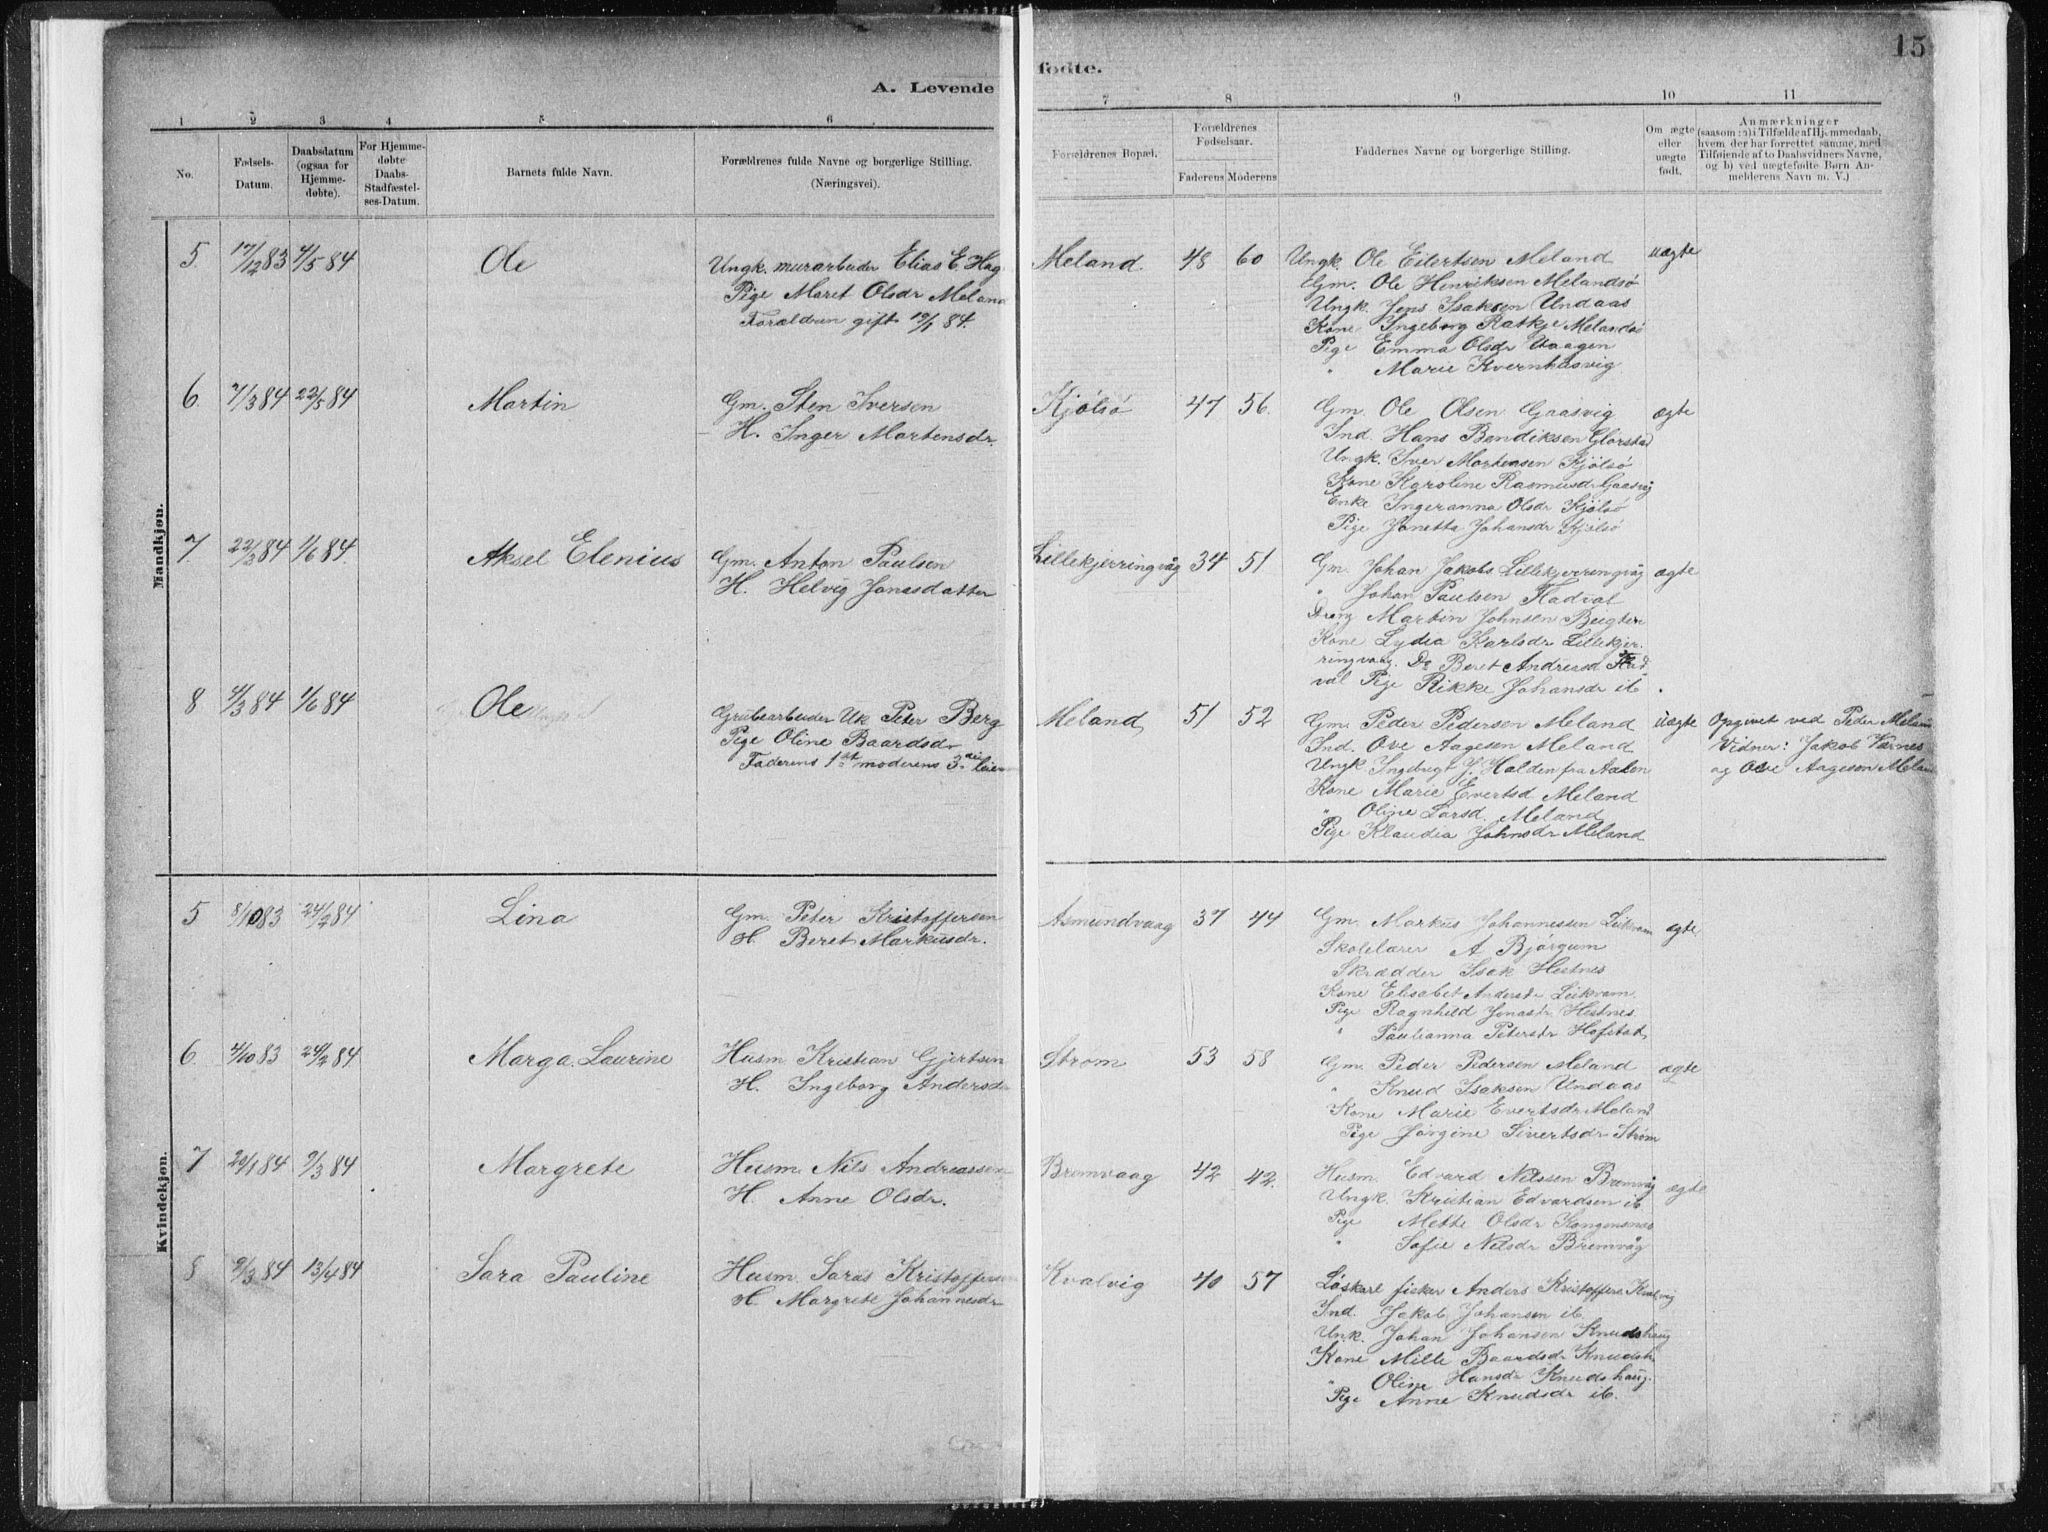 15
A. Levende fødte.
1 2 3 4 5 6 7 8 9 10 11
No.
Fødsels-Datum.
Daabsdatum (ogsaa for Hjemme-døbte).
For Hjemme-døbte Daabs-Stadfæstel-ses-Datum.
Barnets fulde Navn.
Forældrenes fulde Navne og borgerlige Stilling.
(Næringsvei).
Forældrenes Bopæl.
Forældrenes Fødselsaar.
Faderens Moderens
Faddernes Navne og borgerlige Stilling.
Om ægte eller uægte født.
Anmærkninger
(saasom: a) i Tilfælde af Hjemmedaab,
hvem der har forrettet samme, med
Tilføiende af to Daabsvidners Navne,
og b) ved uægtefødte Børn An-
melderens Navn m. V.)
Mandkjøn.
5 17/12 83 4/5 84 Ole
Ungk. murarbeider Elias E. Hag
Pige Maret Olsdr Meland
Forældren gift 19/1 84.
Meland 48 60
Ungk. Ole Eilertsen Meland
Gm. Ole Henriksen Melandsø
Ungk. Jens Isaksen Undaas
Kone Ingeborg Ratkje Melandsø
Pige Emma Olsdr Vaagen
" Marie Kvernhusvig
uægte
6. 7/3 84 22/5 84 Martin
Gm. Sten Iversen
H. Inger Martensdr.
Kjølsø 47 56.
Gm. Ole Olsen Gaasvig
Ind. Hans Bendiksen Glørstad
Ungk. Iver Mortensen Kjølsø
Kone Karoline Rasmusdr Gaasvig
Enke Ingeranna Olsdr Kjølsø
Pige Jonetta Johansdr Kjølsø
ægte
7. 22/2 84 1/6 84. Aksel Elenius
Gm. Anton Paulsen
H. Helvig Jonasdatter
Lillekjerringvåg 34 51
Gm. Johan Jakobs Lillekjerringvåg
" Johan Paulsen Fladval
Dreng Martin Johnsen Bugten
Kone Lydia Karlsdr Lillekjer-
ringvaag. Do Beret Andreasd Flad
val Pige Rikke Johansdr ib.
ægte
8 4/3 84 1/6 84 Ole
Grubearbeider Uk Peter Berg
Pige Oline Baardsdr
Faderens 1st moderens 3die leier
Meland 51 52
Gm. Peder Pedersen Meland
Ind. Ove Aagesen Meland
Ungk Ingebrigt J. Halden fra Aalen
Kone Marie Evertsd Meland
" Oline Larsd Meland
Pige Klaudia Johnsdr Meland
uægte
Opgivet ved Peder Meland
Vidner: Jakob Værnes
og Ove Aagesen Meland
Kvindekjøn.
5 8/10 83 24/2 84 Lina
Gm. Peter Kristoffersen
H. Beret Markusdr.
Asmundvaag 37 44
Gm. Markus Johannessen Leikvam
Skolelærer A Bjørgum
Skrædder Isak Hestnes
Kone Elisabet Andersdr Leikvam
Pige Ragnhild Jonasdr Hestnes
" Paulianna Petersdr Hofstad
ægte
6 4/10 83 24/2 84 Marga. Laurine
Husm Kristian Gjertsen
H. Ingeborg Andersdr
Strøm 53 58
Gm. Peder Pedersen Meland
" Knud Isaksen Undaas
Kone Marie Evertsdr Meland
Pige Jørgine Sivertsdr Strøm
ægte
7 20/1 84 9/3 84 Margrete
Husm Nils Andreassen
H. Anne Olsdr.
Bremvaag 42 42.
Husm. Edvard Nilssen Bremvåg
Ungk. Kristian Edvardsen ib.
Pige Mette Olsdr Kongensnes
" Sofie Nilsdr Bremvåg
ægte
8 9/3 84 13/4 84 Sara Pauline
Husm Saras Kristoffersen
H. Margrete Johannesdr
Kvalvig 40 57
Løskarl fisker Anders Kristoffers Kvalvig
Ind. Jakob Johansen ib.
Unk. Johan Johansen Knudshaug
Kone Mille Baardsdr Knudsh.
" Oline Hansdr Knudshaug.
Pige Anne Knudsdr ib.